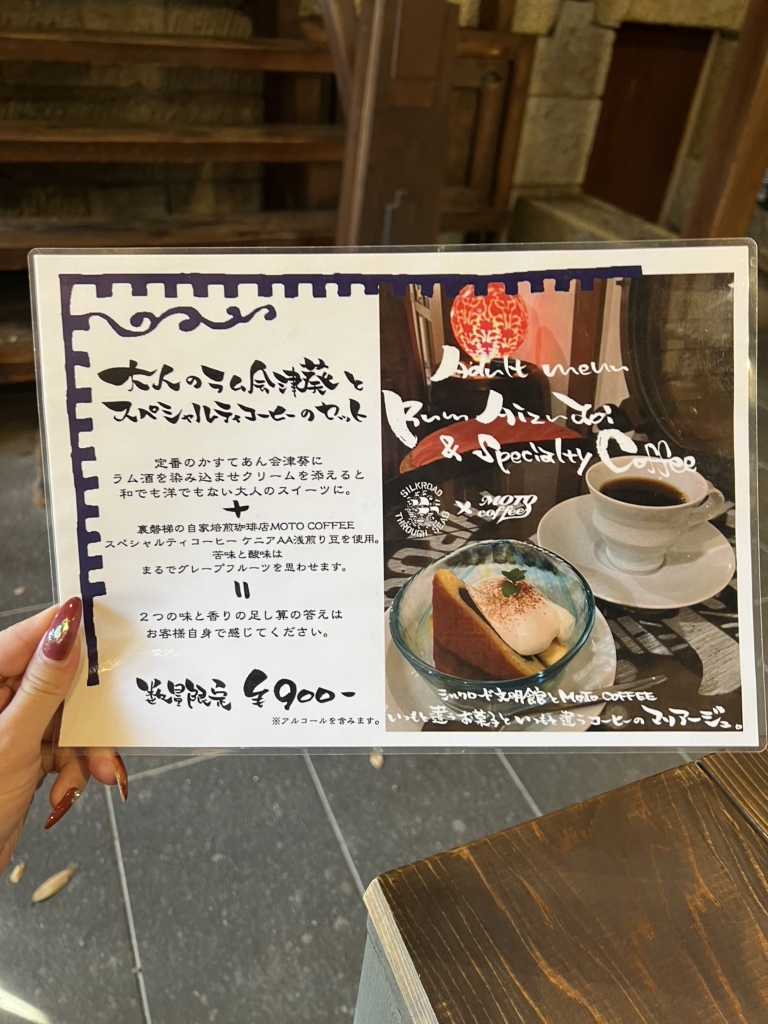 大人のラム会津葵と
スペシャルティコーヒーのセット
定番のかすてあん会津葵に
ラム酒を染み込ませクリームを添えると
和でも洋でもない大人のスイーツに。
+
裏磐梯の自家焙煎珈琲店MOTO COFFEE
スペシャルティコーヒー ケニアAA浅煎り豆を使用。
苦味と酸味は
まるでグレープフルーツを思わせます。
=
2つの味と香りの足し算の答えは
お客様自身で感じてください。
数量限定 ¥900-
※アルコールを含みます。
Adult menu
Rum Aizu Aoi
& Specialty Coffee
SILKROAD THROUGH SEAS × MOTO coffee
シルクロード文明館とMOTO COFFEE
いつもと違うお菓子といつもと違うコーヒーのマリアージュ。